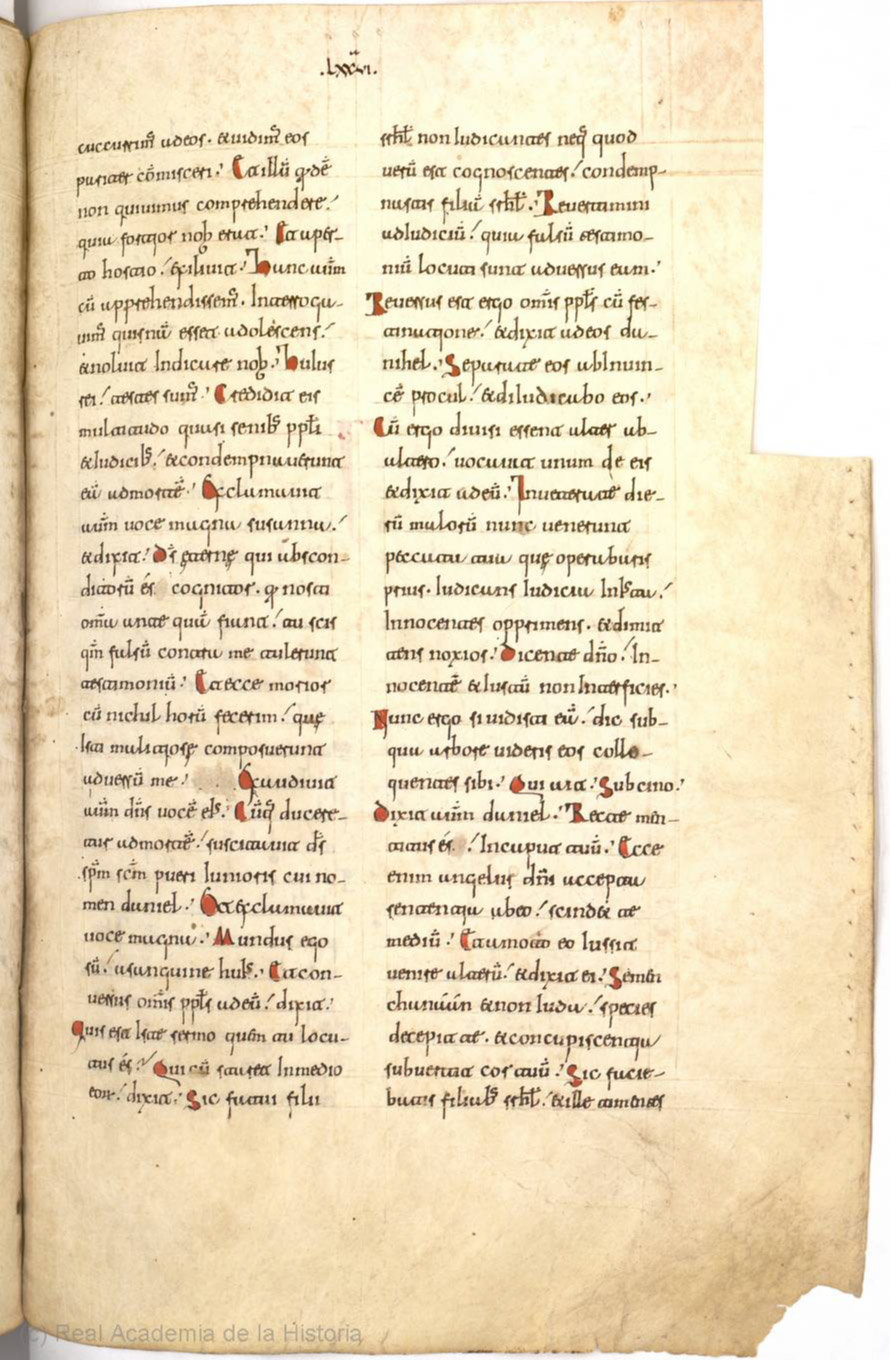 .lxxvi.
cuccurrim̄ ad eos. & uidim̄ eos
pariter com̄isceri. Et illū qͥdē
non quiuimus comprehendere.
quia fortior nob erat. Et aper-
to hostio. exiliuit. Hanc autm̄
cū apprehendissem̄. Interroga-
uim̄ quisnā esset adolescens.
& noluit Indicare nob. Huius
rei. testes sum̄. Credidit eis
multitudo quasi senib ppli
& iudicib. & condempnauerunt
eā ad mortē. Exclamauit
autm̄ voce magna susanna.
& dixit. Ds̄ ęterne qui abscon-
ditorū es̄ cognitor. qͥ nosti
omīa ante quā fiant. tu scis
qm̄ falsū contra me tulerunt
testimoniū. Et ecce morior
cū nichil horū fecerim. quę
Isti malitiose composuerunt
aduersū me. Exaudiuit
autm̄ dn̄s vocē eis. Cūq ducere-
tur ad mortē. suscitauit ds̄
spm̄ scm̄ pueri Iunioris cui no-
men daniel. Et exclamauit
voce magna. Mundus ego
sū. a sanguine huis. Et con-
uersus omīs ppls ad eū. dixit.
Quis est Iste sermo quem tu locu-
tus es̄. Qui cū staret Inmedio
eorū. dixit. Sic fatui filii
srhl̄ non Iudicantes neq quod
verū est cognoscentes. condemp-
nastis filiā srhl̄. Revertimini
ad Iudiciū. quia falsū testimo-
niū locuti sunt aduersus eam.
Reuersus est ergo omīs ppls cū fes-
tinatione. & dixit ad eos da-
nihel. Separate eos ab Inui-
cē procul. & diIudicabo eos.
Cū ergo diuisi essent alter ab
altero. vocauit unum de eis
& dixit ad eū. Inueterate die-
rū malorū nunc venerunt
peccata tua quę operabaris
prius. Iudicans Iudicia Iniusta.
Innocentes opprimens. & dimit-
tens noxios. Dicente dn̄o. In-
nocentē & Iustū non Interficies.
Nunc ergo si uidisti eā. dic sub
qua arbore uideris eos collo-
quentes sibi. Qui ait. Sub cino.
Dixit autm̄ daniel. Recte men-
titus es̄. In caput tuū. Ecce
enim angelus dn̄i accepta
sententia ab eo. scindet te
mediū. Et amoto eo Iussit
venire alterū. & dixit ei. Semen
chanaan & non Iuda. species
decepit te. & concupiscentia
subuertit cor tuū. Sic facie-
batis filiab srhl̄. & ille timentes
(c) Real Academia de la Historia